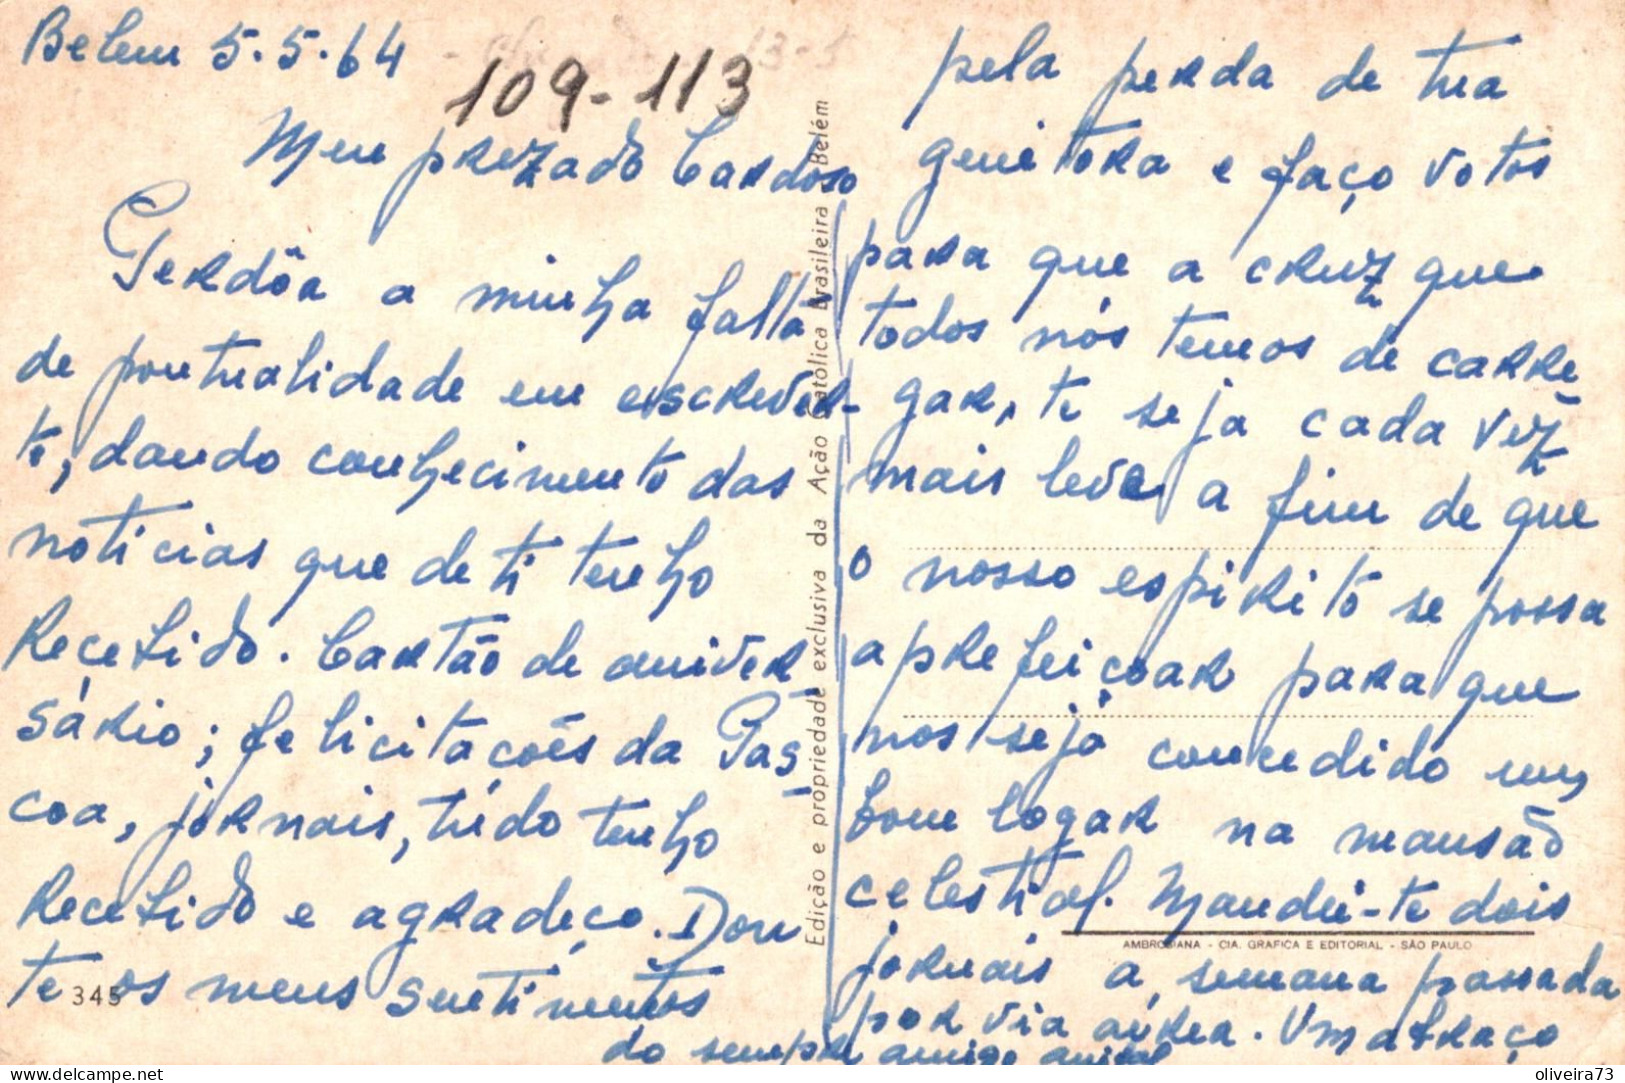 Belem 5.5.64
109-113
Meu prezado Cardoso
Perdôa a minha falta
de pontualidade em escrever-
te, dando conhecimento das
noticias que de ti tenho
Recebido. Cartão de aniver
sário; felicitações da Pás
coa, jornais, túdo tenho
Recebido e agradeço. Dou
te os meus sentimentos
345
pela perda de tua
genitora e faço votos
para que a cruz que
todos nós temos de carre
gar, te seja cada vez
mais leve a fim de que
o nosso espirito se possa
aprefeiçoar para que
nos seja concedido um
bom logar na mansão
celestial. Mandei-te dois
jornais a semana passada
por via aérea. Um abraço
do sempre amigo
Edição e propriedade exclusiva da Ação Católica Brasileira Belém
AMBROSIANA - CIA. GRAFICA E EDITORIAL - SÃO PAULO
www.delcampe.net
oliveira73